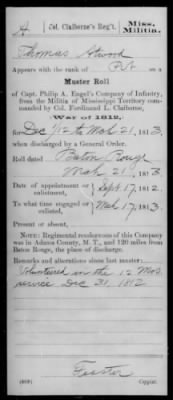 A | Col. Claiborne's Reg't. | Miss. Militia.
Thomas Atwood
Appears with the rank of Pvt on a
Muster Roll
of Capt. Philip A. Engel's Company of Infantry,
from the Militia of Mississippi Territory com-
manded by Col. Ferdinand L. Claiborne,
War of 1812,
for Dec /12 to Mch 21, 1813,
when discharged by General Order.
Roll dated Baton Rouge
Mch 21, 1813.
Date of appointment or enlistment, Sept 17, 1812.
To what time engaged or enlisted, Mch 17, 1813.
Present or absent,
NOTE: Regimental rendezvous of this Company
was in Adams County, M. T., and 120 miles from
Baton Rouge, the place of discharge.
Remarks and alterations since last muster:
Volunteered in the 12 Mos
service Dec 31, 1812
Copyist.